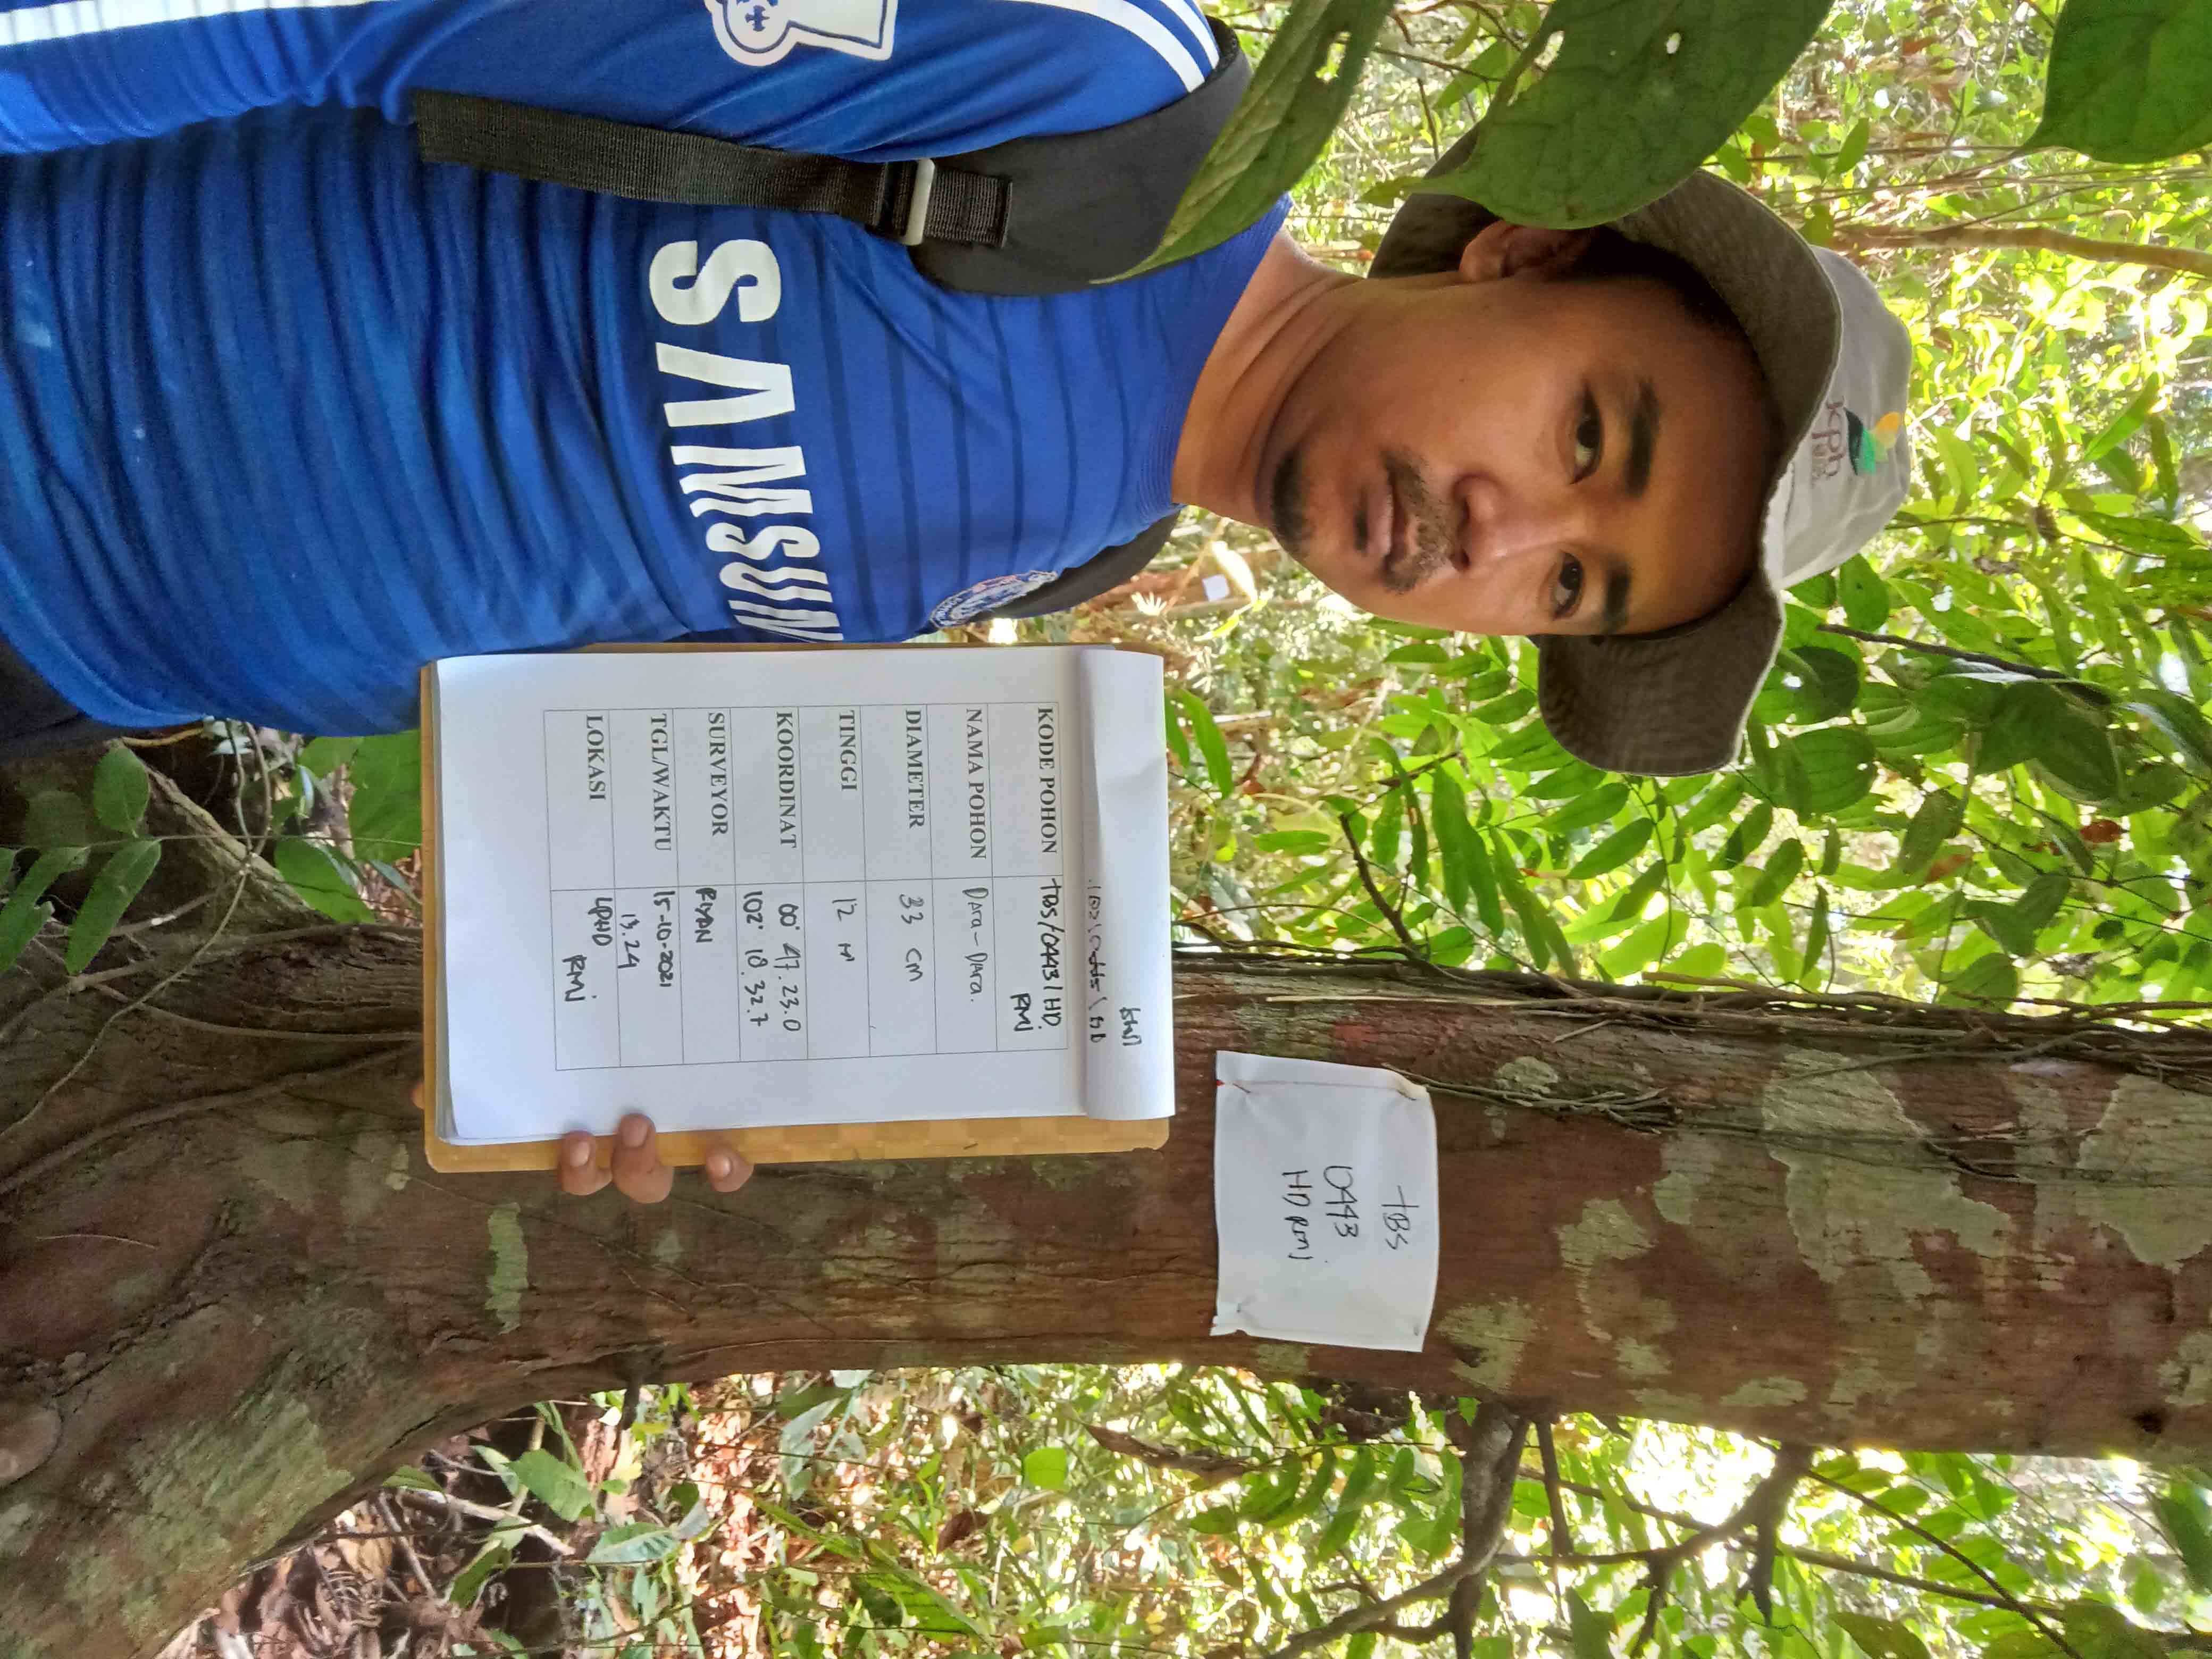 kph
TBS
0443
HD RMJ
KODE POHON TBS/0443/HD.
RMJ
NAMA POHON DArA-DArA.
DIAMETER 33 CM
TINGGI 12 M
KOORDINAT 00° 47.23.0
102° 18.32.7
SURVEYOR RIYAN
TGL/WAKTU 15-10-2021
13.24
LOKASI LPHD
RMJ
SAMSUN